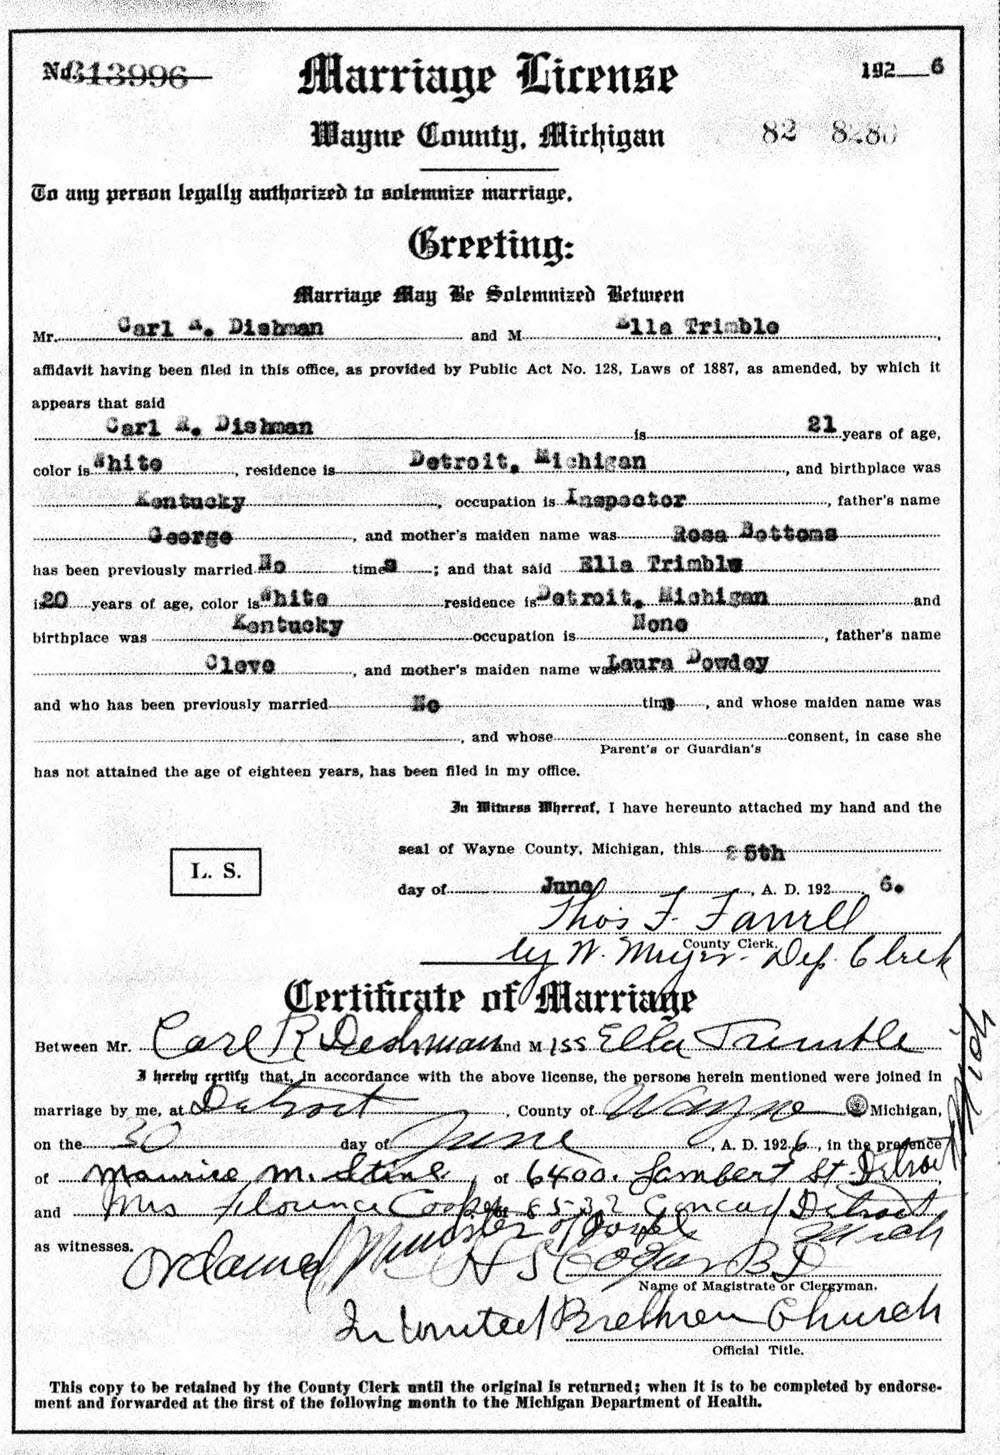 No. 313996
Marriage License
192 6
Wayne County, Michigan
82 8280
To any person legally authorized to solemnize marriage,
Greeting:
Marriage May Be Solemnized Between
Mr. Carl R. Dishman and M Ella Trimble ,
affidavit having been filed in this office, as provided by Public Act No. 128, Laws of 1887, as amended, by which it
appears that said
Carl R. Dishman is 21 years of age,
color is White , residence is Detroit, Michigan , and birthplace was
Kentucky , occupation is Inspector , father's name
George , and mother's maiden name was Rosa Bottoms
has been previously married No times ; and that said Ella Trimble
is 20 years of age, color is White residence is Detroit, Michigan and
birthplace was Kentucky occupation is None , father's name
Cleve , and mother's maiden name was Laura Dowdey
and who has been previously married No time , and whose maiden name was
, and whose consent, in case she
Parent's or Guardian's
has not attained the age of eighteen years, has been filed in my office.
In Witness Whereof, I have hereunto attached my hand and the
seal of Wayne County, Michigan, this 25th
L. S.
day of June , A. D. 192 6.
Thos F. Farrell
County Clerk.
by W. Meyer Dep. Clerk
Certificate of Marriage
Between Mr. Carl R Dishman and Miss Ella Trimble
I hereby certify that, in accordance with the above license, the persons herein mentioned were joined in
marriage by me, at Detroit , County of Wayne Michigan,
on the 30 day of June , A. D. 1926 , in the presence
of Maurice M. Stine of 6400. Lambert St. Detroit Mich
and Mrs Florence 6532 Detroit
Mich
as witnesses.
Ordained Minister of Gospel
H S BD
Name of Magistrate or Clergyman.
In United Brethren Church
Official Title.
This copy to be retained by the County Clerk until the original is returned; when it is to be completed by endorse-
ment and forwarded at the first of the following month to the Michigan Department of Health.